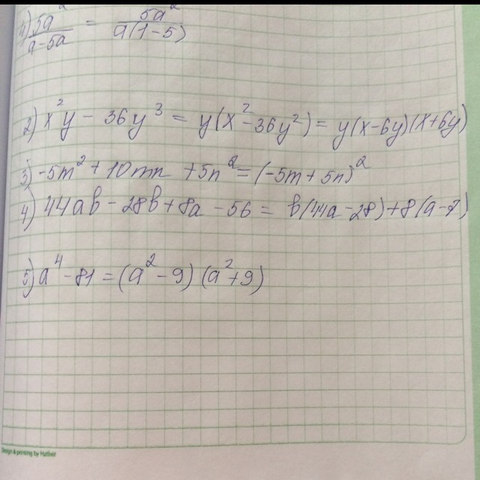 1) 5a²/a-5a = 5a²/a(1-5)
2) x²y - 36y³ = y(x²-36y²) = y(x-6y)(x+6y)
3) -5m² + 10mn + 5n² = (-5m + 5n)²
4) 44ab - 28b + 8a - 56 = b(44a-28)+8(a-7)
5) a⁴ - 81 = (a² - 9)(a²+9)
Design & printing by Hatber